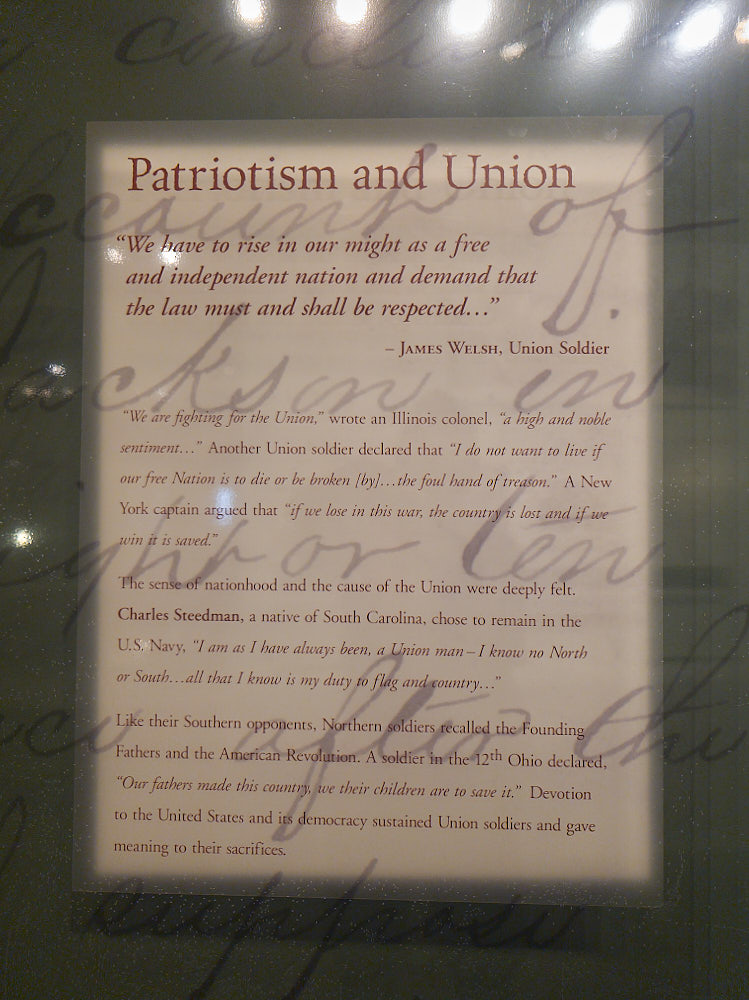 Patriotism and Union
“We have to rise in our might as a free
and independent nation and demand that
the law must and shall be respected...”
– James Welsh, Union Soldier
“We are fighting for the Union,” wrote an Illinois colonel, “a high and noble
sentiment...” Another Union soldier declared that “I do not want to live if
our free Nation is to die or be broken [by]...the foul hand of treason.” A New
York captain argued that “if we lose in this war, the country is lost and if we
win it is saved.”
The sense of nationhood and the cause of the Union were deeply felt.
Charles Steedman, a native of South Carolina, chose to remain in the
U.S. Navy, “I am as I have always been, a Union man – I know no North
or South...all that I know is my duty to flag and country...”
Like their Southern opponents, Northern soldiers recalled the Founding
Fathers and the American Revolution. A soldier in the 12th Ohio declared,
“Our fathers made this country, we their children are to save it.” Devotion
to the United States and its democracy sustained Union soldiers and gave
meaning to their sacrifices.
account of
Jackson in
or ten
after the
suppose